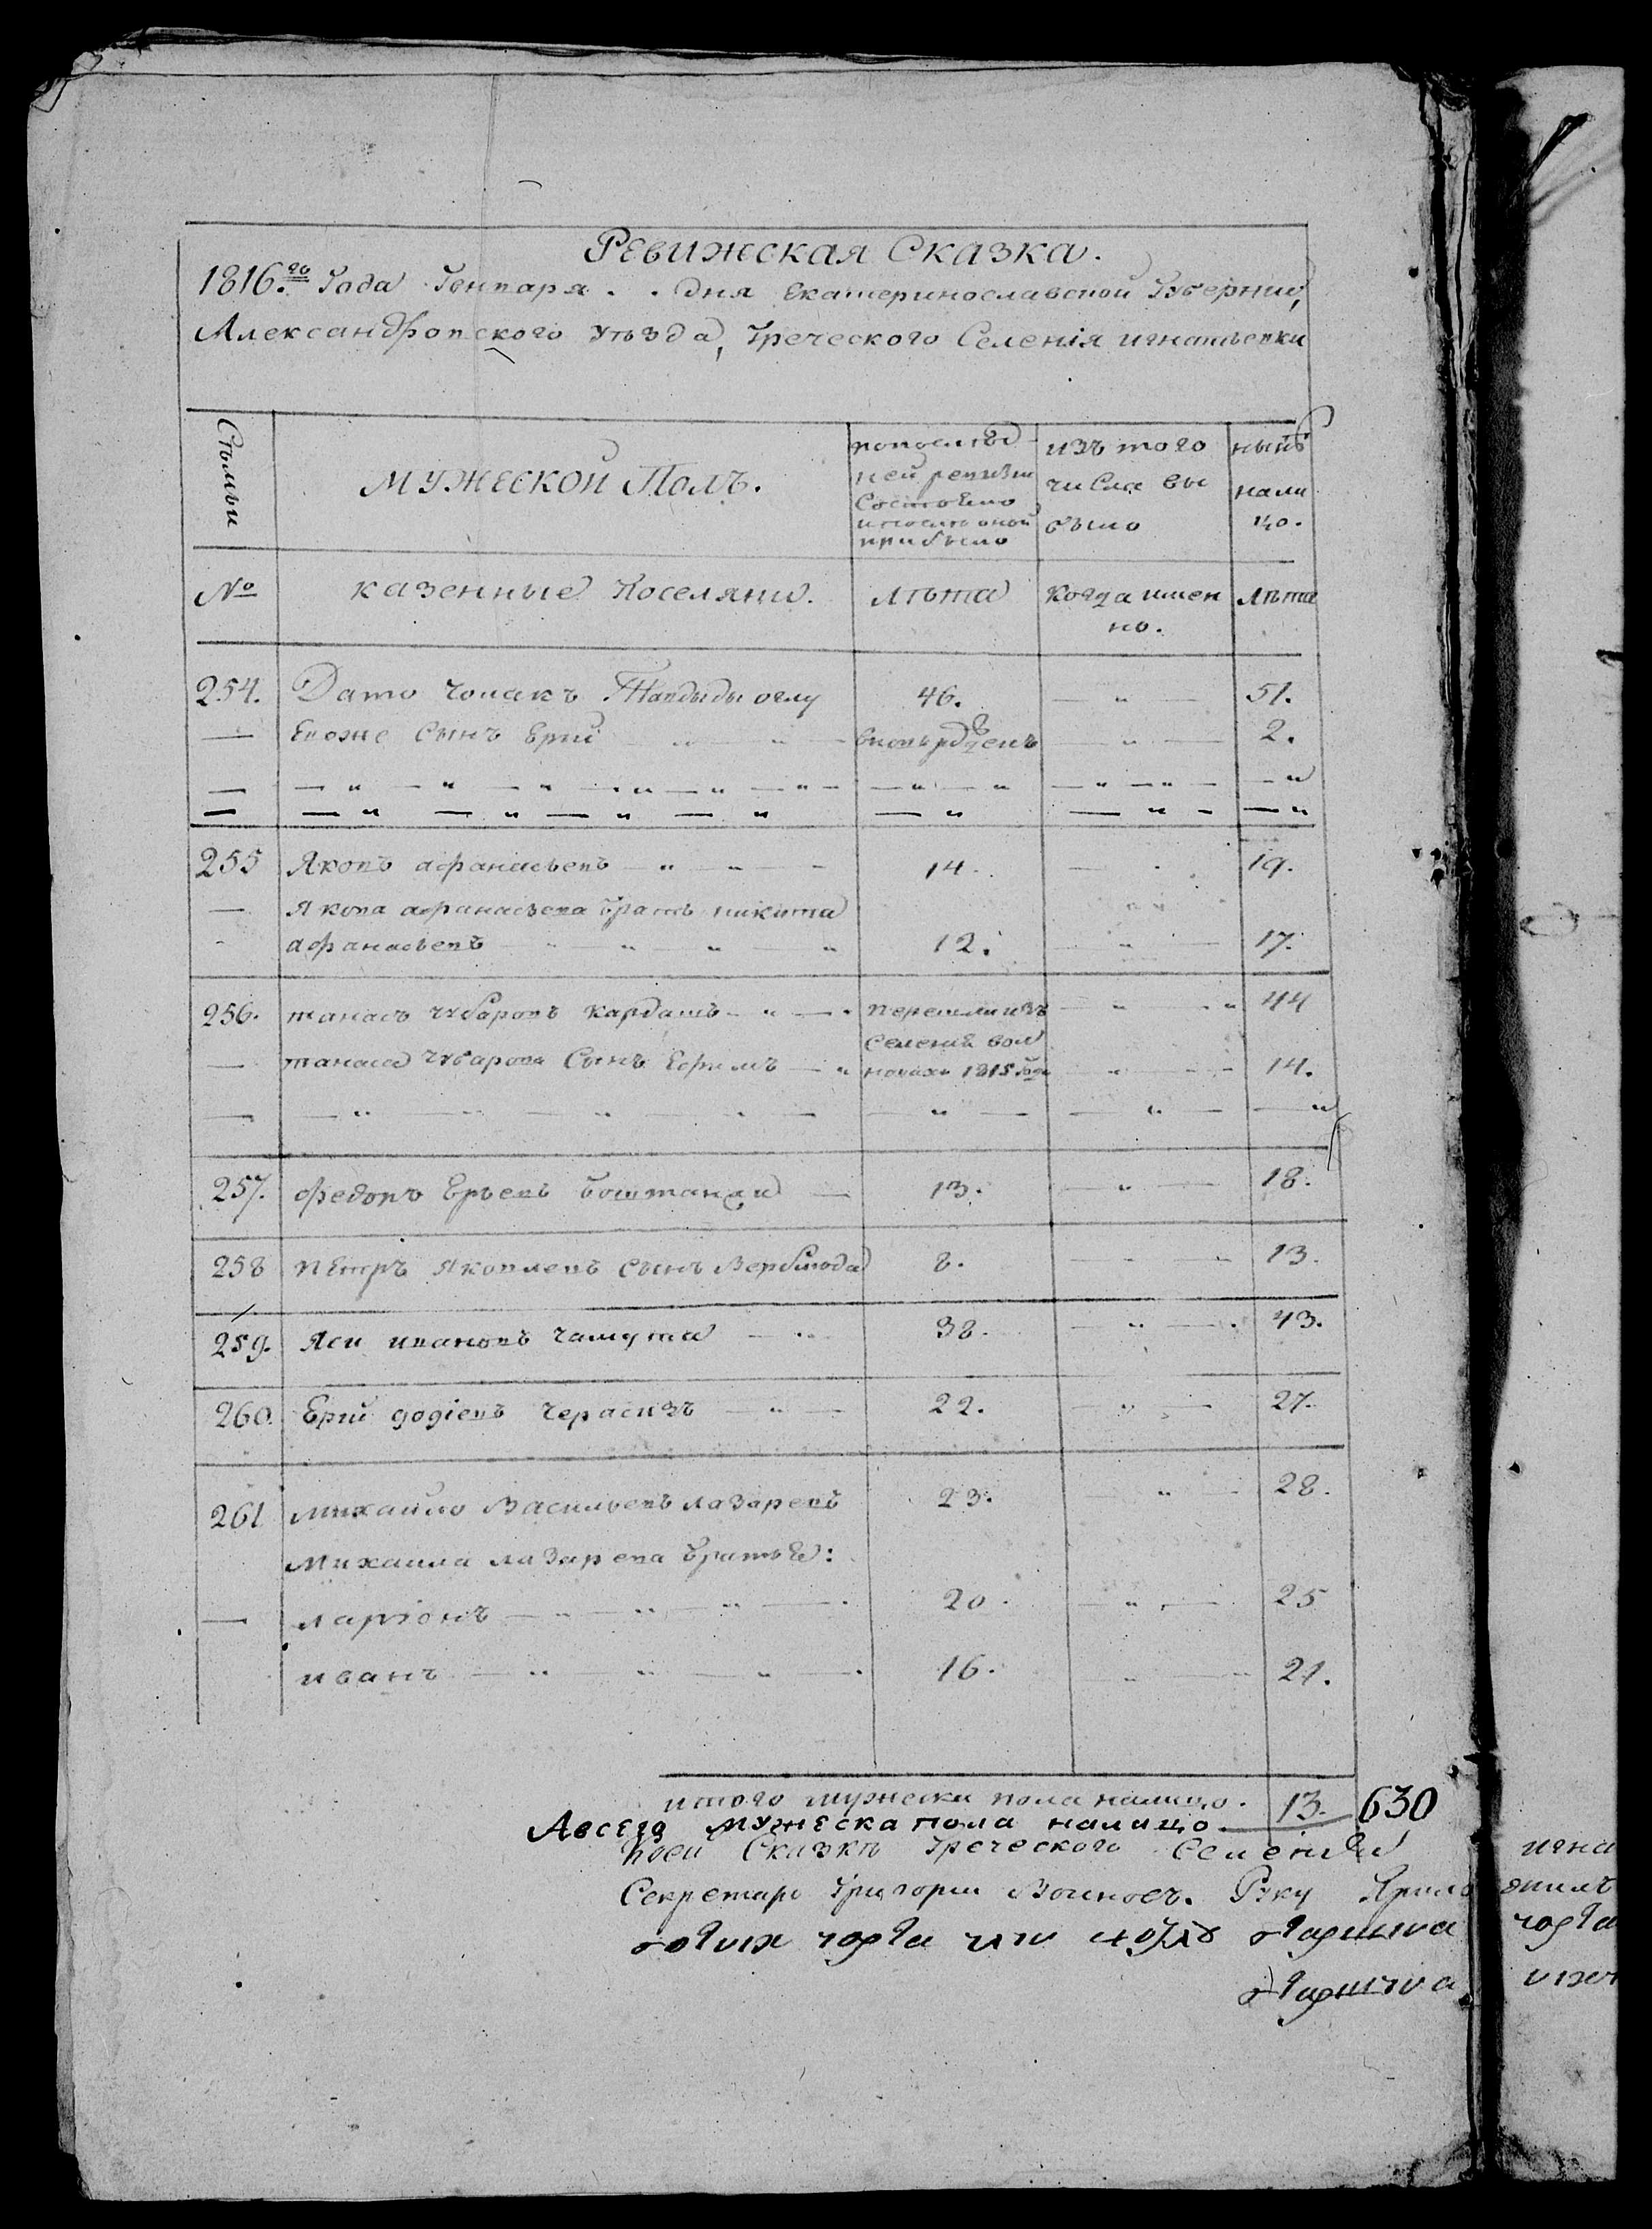 РЕВИЖСКАЯ СКАЗКА.
1816.го Года Генваря . . дня Екатеринославской Губернии,
Александровского уѣзда, Греческого Селенія игнатьевки
Сѣмьи
МУЖЕСКОЙ Полъ.
попослѣд
ней ревизи
Состояло
ипослѣ оной
прибыло
изъ того
числа вы
было
нынѣ
нали
цо.
№ казенные Поселяни. лѣта Когда имен лѣта
но.
254. Дато чонакъ оглу 46. — „ — 51.
— Евоже Сынъ Ерій „ „ вновь рожденъ — „ — 2.
— — „ — „ — „ — „ — „ — „ — — „ — „ — „ — „ — — „
— — „ — „ — „ — „ — „ — „ — — „
255 Яковъ афанасьевъ — „ — „ — 14. — 19.
— Якова афанасьева братъ никита „ „
- афанасьевъ — „ „ „ „ 12. — „ — 17.
256. танасъ чубаровъ Кардашъ — „ — перешли изъ — „ — „ 44
Селенія
— танаса чубарова Сынъ Ефимъ — „ 1815 года — „ — 14.
— — „ — — „ — „ — — „ — — „ — — „
257. федоръ Ерьевъ боштанжи — 13. — „ — 18.
258 пЕтръ Яковлевъ Сынъ Верблюда 8. — — „ 13.
259. Яси ивановъ чамута — „ 38. — „ — 43.
260. Ерій — „ — 22. — „ — 27.
261 михайло Васильевъ лазаревъ 23. — „ — 28.
Михаила лазарева братья:
— ларіонъ — „ — „ — „ — 20. — „ — 25
иванъ — „ — „ — „ — 16. „ — 21.
итого мужеска пола налицо. 13.
Авсего мужеска пола налицо. 630
Ксей Сказкѣ Греческого Селенія игна
Секретарь Григорій Воиновъ. Руку Прило жилъ